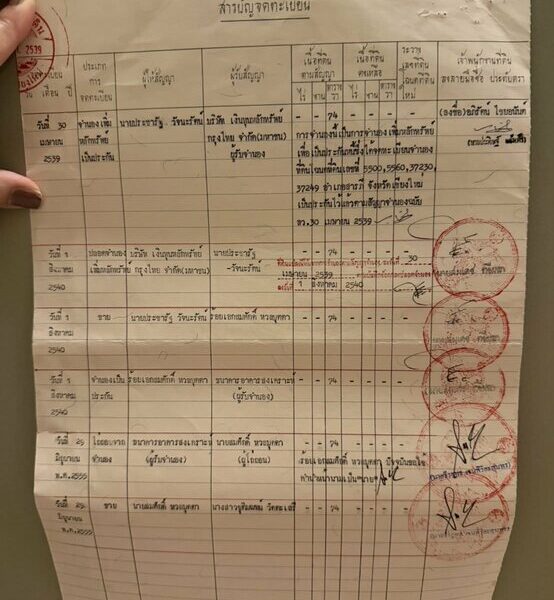 สารบัญจดทะเบียน
จดทะเบียน
วัน เดือน ปี
ประเภทการจดทะเบียน
ผู้ให้สัญญา
ผู้รับสัญญา
เนื้อที่ดินตามสัญญา
ไร่ งาน ตารางวา
เนื้อที่ดินคงเหลือ
ไร่ งาน ตารางวา
ระวาง เลขที่ดิน โฉนดที่ดินใหม่
เจ้าพนักงานที่ดิน
ลงลายมือชื่อ ประทับตรา
2539
วันที่ 30 เมษายน 2539
จำนองเพิ่มหลักทรัพย์เป็นประกัน
นายประชารัฐ วัจนะรัตน์
บริษัท เงินทุนหลักทรัพย์
กรุงไทย จำกัด(มหาชน)
ผู้รับจำนอง
- - 74 - - - -
การจำนองนี้เป็นการจำนองเพิ่มหลักทรัพย์
เพื่อเป็นประกันหนี้ซึ่งได้จดทะเบียนจำนอง
ที่ดินโฉนดที่ดินเลขที่ 5500,5560,37230,
37249 อำเภอสารภี จังหวัดเชียงใหม่
เป็นประกันไว้แล้วตามสัญญาจำนองฉบับ
ลว.30 เมษายน 2539
(ลงชื่อ)อภิรัตน์ ไชยอนันต์
วันที่ 1 สิงหาคม 2540
ปลอดจำนองเพิ่มหลักทรัพย์
บริษัท เงินทุนหลักทรัพย์
กรุงไทย จำกัด(มหาชน)
นายประชารัฐ
วัจนะรัตน์
- - 74 - - - -
30
เมษายน 2539
1 สิงหาคม 2540
วันที่ 1 สิงหาคม 2540
ขาย
นายประชารัฐ วัจนะรัตน์
ร้อยเอกสมศักดิ์ หวงบุตดา
- - 74 - - - -
วันที่ 1 สิงหาคม 2540
จำนองเป็นประกัน
ร้อยเอกสมศักดิ์ หวงบุตดา
ธนาคารอาคารสงเคราะห์
(ผู้รับจำนอง)
- - 74 - - - -
วันที่ 25 มิถุนายน พ.ศ.2555
ไถ่ถอนจากจำนอง
ธนาคารอาคารสงเคราะห์
(ผู้รับจำนอง)
นายสมศักดิ์ หวงบุตดา
(ผู้ไถ่ถอน)
- - 74 - - - -
ร้อยเอกสมศักดิ์ หวงบุตดา ปัจจุบันขอใช้
คำนำหน้านามเป็น"นาย"
วันที่ 25 มิถุนายน พ.ศ.2555
ขาย
นายสมศักดิ์ หวงบุตดา
- - 74 - - - -